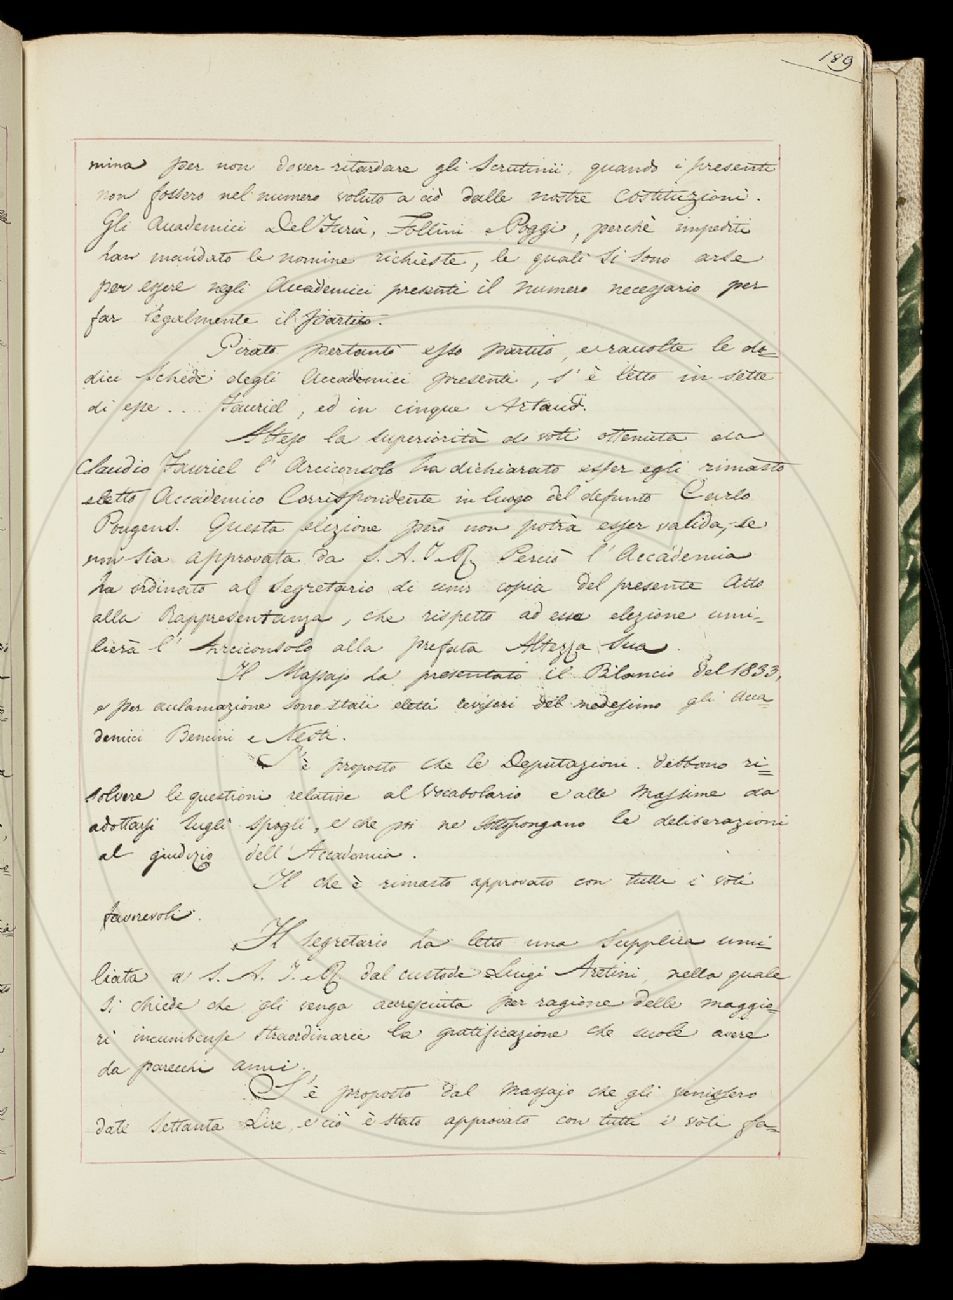 189
mina per non dover ritardare gli Scrutinii, quando i presenti
non fossero nel numero voluto a ciò dalle nostre Costituzioni.
Gli Accademici Del Furia, Follini e Poggi, perchè impediti
han mandato le nomine richieste, le quali si sono arse
per essere negli Accademici presenti il numero necessario per
far legalmente il partito.
Girato pertanto esso partito, e raccolte le do=
dici Schede degli Accademici presenti, s'è letto in sette
di esse ... Fauriel, ed in cinque Artaud.
Atteso la superiorità de voti ottenuta da
Claudio Fauriel l'Arciconsolo ha dichiarato esser egli rimasto
eletto Accademico Corrispondente in luogo del defunto Carlo
Pougens. Questa elezione però non potrà esser valida, se
non sia approvata da S. A. I. e R. Perciò l'Accademia
ha ordinato al Segretario di unir copia del presente Atto
alla Rappresentanza, che rispetto ad essa elezione umi-
lierà l'Arciconsolo alla prefata Altezza Sua.
Il Massajo ha presentato il Bilancio del 1833,
e per acclamazione sono stati eletti revisori del medesimo gli Acca-
demici Bencini e Nesti.
S'è proposto che le Deputazioni debbano ri=
solvere le questioni relative al Vocabolario e alle Massime da
adottarsi sugli spogli, e che poi ne sottopongano le deliberazioni
al giudizio dell'Accademia.
Il che è rimasto approvato con tutti i voti
favorevoli.
Il segretario ha letto una Supplica umi-
liata a S. A. I. e R. dal custode Luigi Aretini, nella quale
si chiede che gli venga accresciuta per ragione delle maggio=
ri incumbenze straordinarie la gratificazione che suole avere
da parecchi anni.
S'è proposto dal Massajo che gli venissero
date settanta Lire, e ciò è stato approvato con tutti i voti fa=